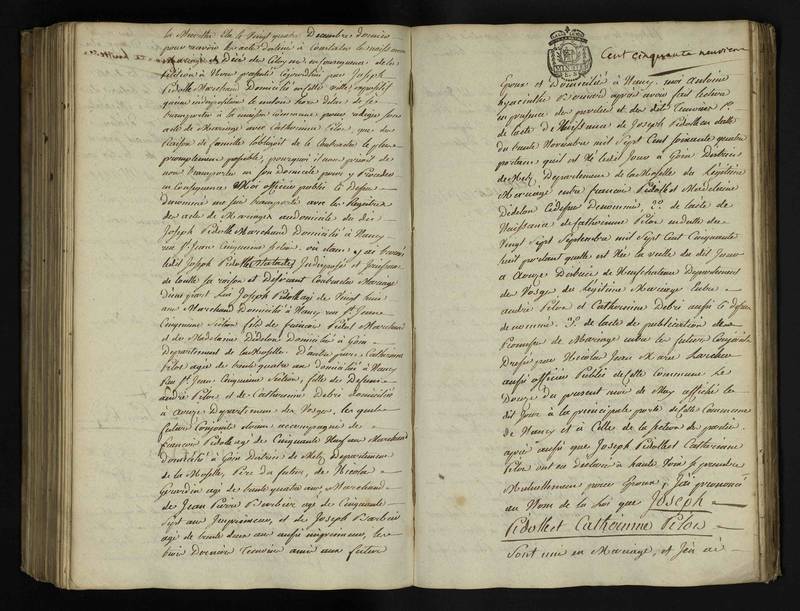 la Moselle Ele le Vingt quatre Decembre dernier
pour acte
de citoyen en de la
petition a Nous présenté par Joseph
Pidolle Marchand Domicilié en cette ville
quune indisposition le met hors detat de se
transporter a la maison commune pour rédiger son
acte de Mariage avec Catherinne Pelox, que des
Raison de famille lobligoit de le Contracter le plus
promptement possible, pourquoi il nous prioit de
nous transporter en son domicile pour y Proceder
en Consequence Moi officier public ci Dessus
Denommé me suis transporté avec les Registres
des acte de Mariage au domicile du dit
Joseph Pidolle Marchand Domicilié a Nancy
rue St. Jean Cinquieme section où étant y ai trouvé
ledit Joseph Pidolle Indisposé et Jouissant
de toute sa raison et Désirant Contracter Mariage
Dune part Lui Joseph Pidolle agé de Vingt huit
ans Marchand Domicilié à Nancy rue St. Jean
Cinquieme Section fils de francois Pidol Marchand
et de Madelaine Didelon Domicilié à Goin
Departement de la Moselle. D'autre part, Catherinne
Pelox agée de trente quatre ans domiciliée à Nancy
Rue St. Jean Cinquieme Section, fille des Defunt
andré Pelox et de Catherinne Debré domicilié
à Aouze Departement des Vosges, les quels
futurs Conjoints étaient accompagnés de
francois Pidolle agé de Cinquante Neuf ans Marchand
domicilié à Goin District de Metz Departement
de la Moselle, Père du futur, de Nicolas
Girardin agé de trente quatre ans Marchand
de Jean Pierre Barbier agé de Cinquante
Sept ans Imprimeur, et de Joseph Barbier
agé de trente deux ans aussi imprimeur, les
trois Dernier Temoins amis aux future
Cent cinquante neuvieme
Epoux et Domiciliés à Nancy. moi Antoine
hyacinthe après avoir fait lecture
en presence des parties et des dits Temoins 1°.
de l'acte de Naissance de Joseph Pidolle en datte
du trente Novembre mil Sept Cent soixante quatre
portant quil est Né ledit Jour à Goin District
de Metz, Departement de la Moselle du Légitime
Mariage entre francois Pidolle et Madelaine
Didelon cidessus denommé, 2°. de l'acte de
Naissance de Catherinne Pelox en datte du
Vingt Sept Septembre mil Sept Cent Cinquante
huit portant quelle est Née la veille du dit Jour
a Aouze District de Neufchateau Departement
des Vosges du Légitime Mariage Entre
andré Pelox et Catherinne Debré aussi ci Dessus
denommé. 3°. de lacte de publication de
Promesse de Mariage entre les futurs Conjoints
Dressé par Nicolas Jean Marc
aussi officier Public de cette commune le
Douze du present mois de May affiché le
dit Jour à la principale porte de cette Commune
de Nancy et à Celle de la section des parties.
après aussi que Joseph Pidolle et Catherinne
Pelox ont eu declaré à haute Voix se prendre
Mutuellement pour Epoux, J'ai prononcé
au Nom de la Loi que Joseph
Pidolle et Catherinne Pelox
Sont uni en Mariage, et J'ai